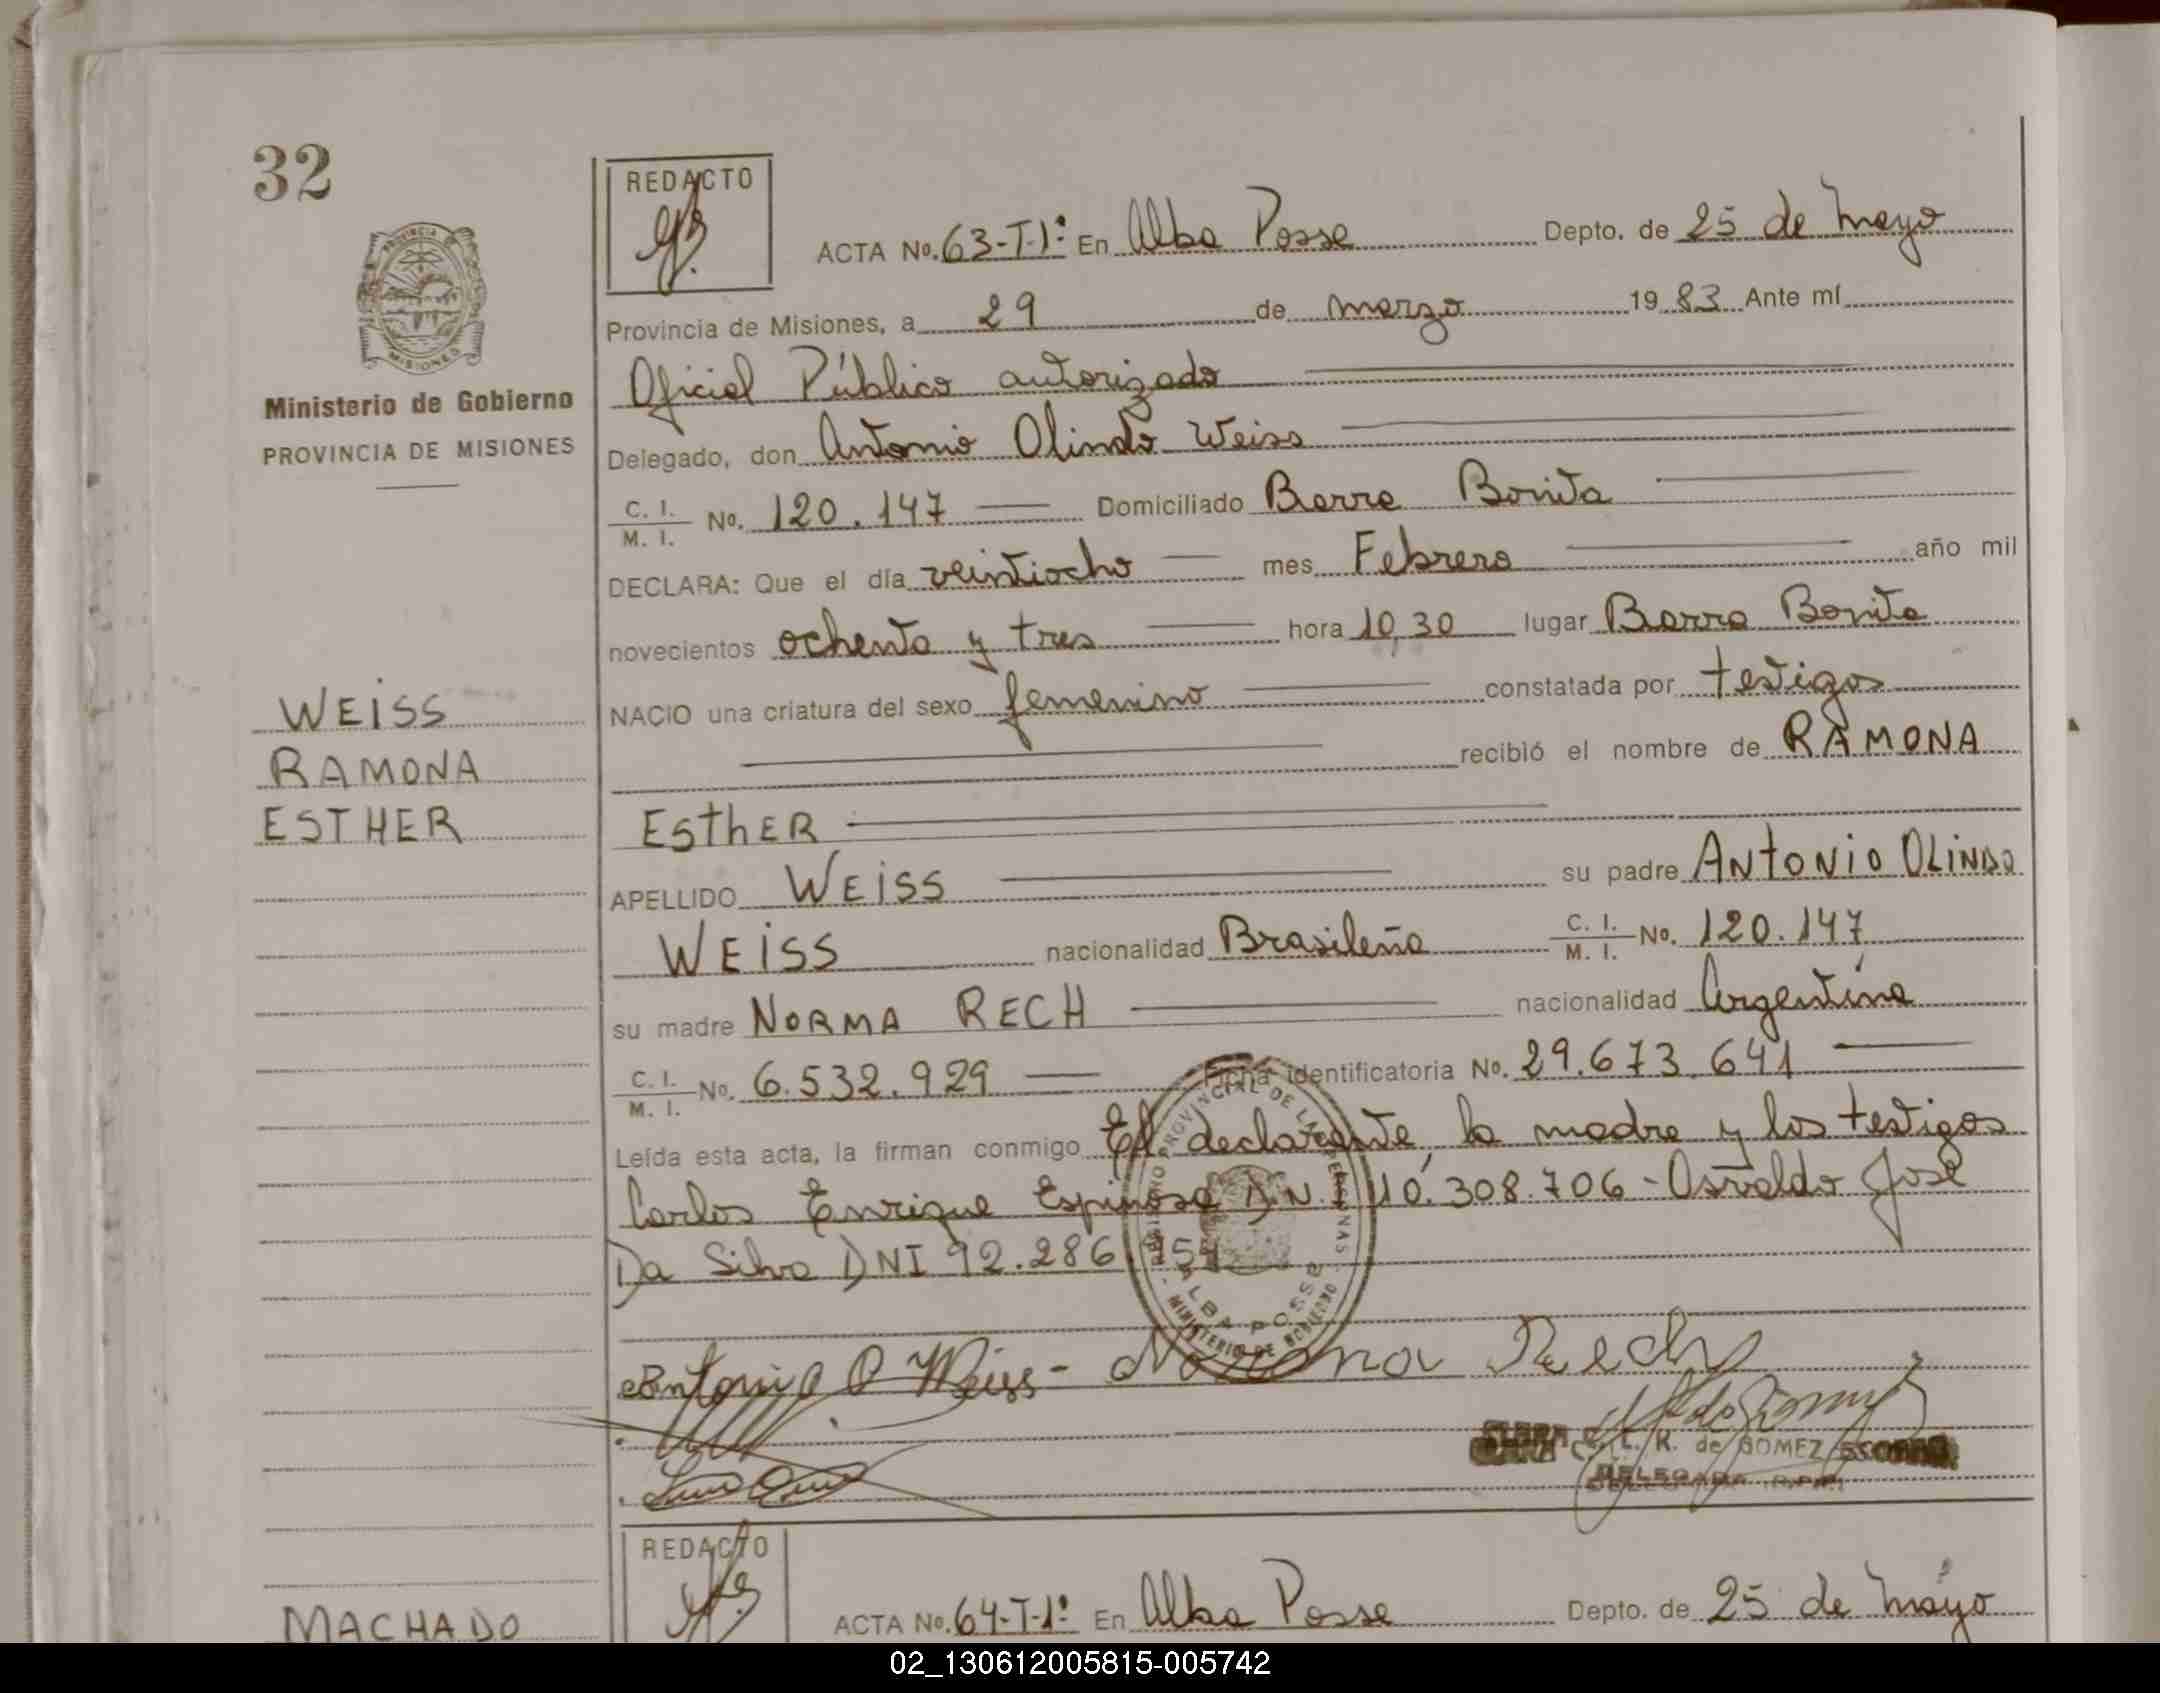 32
REDACTO
ACTA No. 63-T-1º En Alba Posse Depto. de 25 de mayo
Provincia de Misiones, a 29 de marzo 19 83 Ante mí
Oficial Público autorizado
Delegado, don Antonio Olindo Weiss
C. I. / M. I. No. 120.147 Domiciliado Barra Bonita
DECLARA: Que el día veintiocho mes Febrero año mil
novecientos ochenta y tres hora 10,30 lugar Barra Bonita
NACIO una criatura del sexo femenino constatada por testigos
recibió el nombre de RAMONA
EsthER
APELLIDO WEiSS su padre ANtONiO OLiNDO
WEiSS nacionalidad Brasileña C. I. / M. I. No. 120.147
su madre NORMA RECH nacionalidad Argentina
C. I. / M. I. No. 6.532.929 Ficha identificatoria No. 29.673.641
Leída esta acta, la firman conmigo El declarante, la madre y los testigos
Carlos Enrique Espinosa D.N.I 10.308.706 - Osvaldo José
Da Silva DNI 92.286
Antonio O Weiss - Norma Rech
L. R. de GOMEZ
DELEGADA R.P.P.
PROVINCIA DE
MISIONES
Ministerio de Gobierno
PROVINCIA DE MISIONES
WEiSS
RAMONA
ESTHER
PROVINCIAL DE LAS PERSONAS
ALBA POSSE
MINISTERIO DE GOBIERNO
REDACTO
ACTA No. 64-T-1º En Alba Posse Depto. de 25 de mayo
MACHADO
02_130612005815-005742